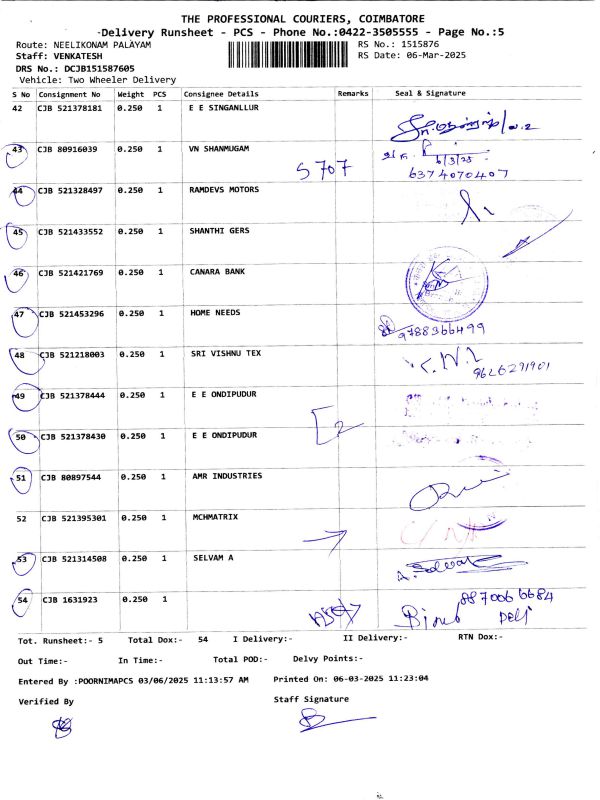 THE PROFESSIONAL COURIERS, COIMBATORE
Delivery Runsheet - PCS - Phone No.:0422-3505555 - Page No.:5
Route: NEELIKONAM PALAYAM
RS No.: 1515876
Staff: VENKATESH
RS Date: 06-Mar-2025
DRS No.: DCJB151587605
Vehicle: Two Wheeler Delivery
S No Consignment No Weight PCS Consignee Details Remarks Seal & Signature
42 CJB 521378181 0.250 1 E E SINGANLLUR
43 CJB 80916039 0.250 1 VN SHANMUGAM
6/3/25
S 707 6374070407
44 CJB 521328497 0.250 1 RAMDEVS MOTORS
45 CJB 521433552 0.250 1 SHANTHI GERS
46 CJB 521421769 0.250 1 CANARA BANK
47 CJB 521453296 0.250 1 HOME NEEDS
9788366499
48 CJB 521218003 0.250 1 SRI VISHNU TEX
9626291901
49 CJB 521378444 0.250 1 E E ONDIPUDUR
2
50 CJB 521378430 0.250 1 E E ONDIPUDUR
51 CJB 80897544 0.250 1 AMR INDUSTRIES
52 CJB 521395301 0.250 1 MCHMATRIX
53 CJB 521314508 0.250 1 SELVAM A
A. Selvam
54 CJB 1631923 0.250 1
8870066684
Tot. Runsheet:- 5 Total Dox:- 54 I Delivery:- II Delivery:- RTN Dox:-
Out Time:- In Time:- Total POD:- Delvy Points:-
Entered By :POORNIMAPCS 03/06/2025 11:13:57 AM Printed On: 06-03-2025 11:23:04
Verified By Staff Signature